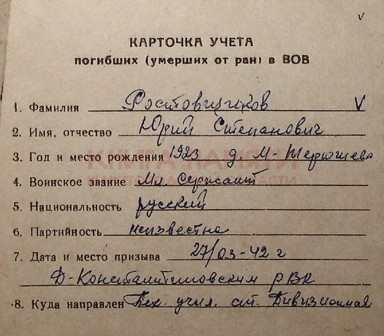 КАРТОЧКА УЧЕТА
погибших (умерших от ран) в ВОВ
1. Фамилия Ростовщиков V
2. Имя, отчество Юрий Степанович
3. Год и место рождения 1923 д. М-
4. Воинское звание Мл. Сержант
5. Национальность русский
6. Партийность неизвестно
7. Дата и место призыва 27/03-42 г
Д-Константиновским РВК
8. Куда направлен Тех. учил. ст. Дивизионная
КНИГА ПАМЯТИ